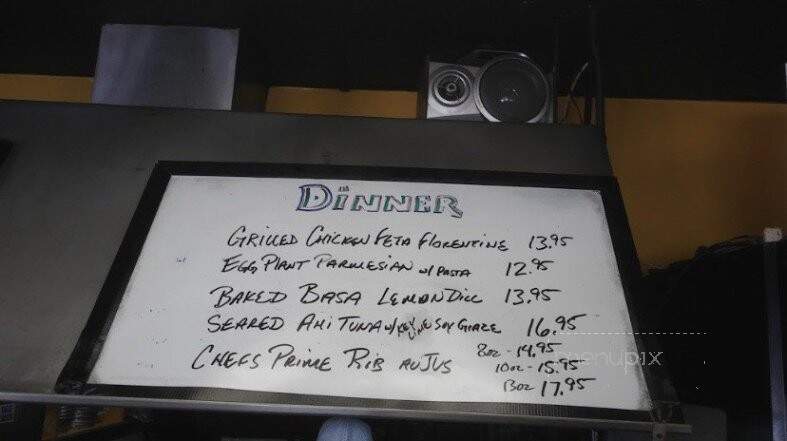 DINNER
GRILLED CHICKEN FETA FLORENTINE 13.95
EGG PLANT PARMESIAN w/ PASTA 12.95
BAKED BASA LEMON DILL 13.95
SEARED AHI TUNA w/ KEY LIME SOY GLAZE 16.95
CHEFS PRIME RIB AU JUS 8oz - 14.95
10oz - 15.95
13oz 17.95
menupix